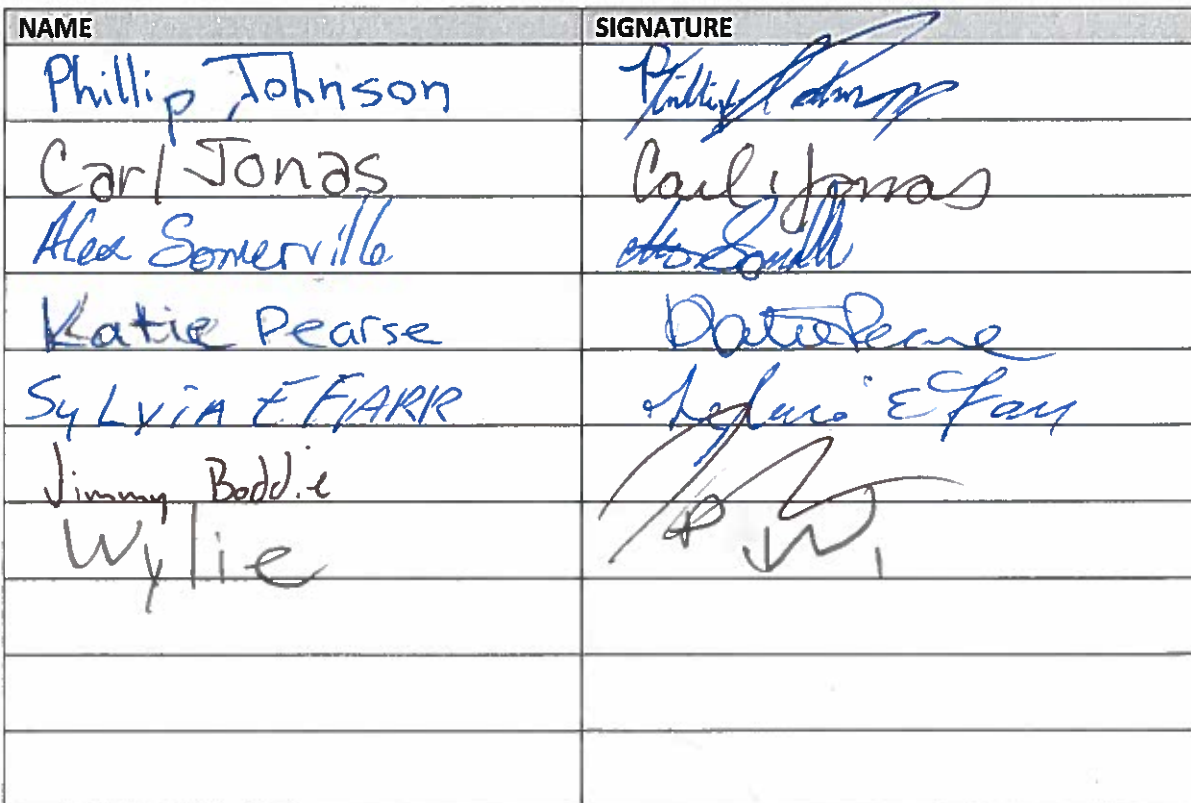 NAME SIGNATURE
Phillip Johnson Phillip Johnson
Carl Jonas Carl Jonas
Alex Somerville
Katie Pearse Katie Pearse
SyLViA E FARR Sylvia E Farr
Jimmy Boddie
Wylie